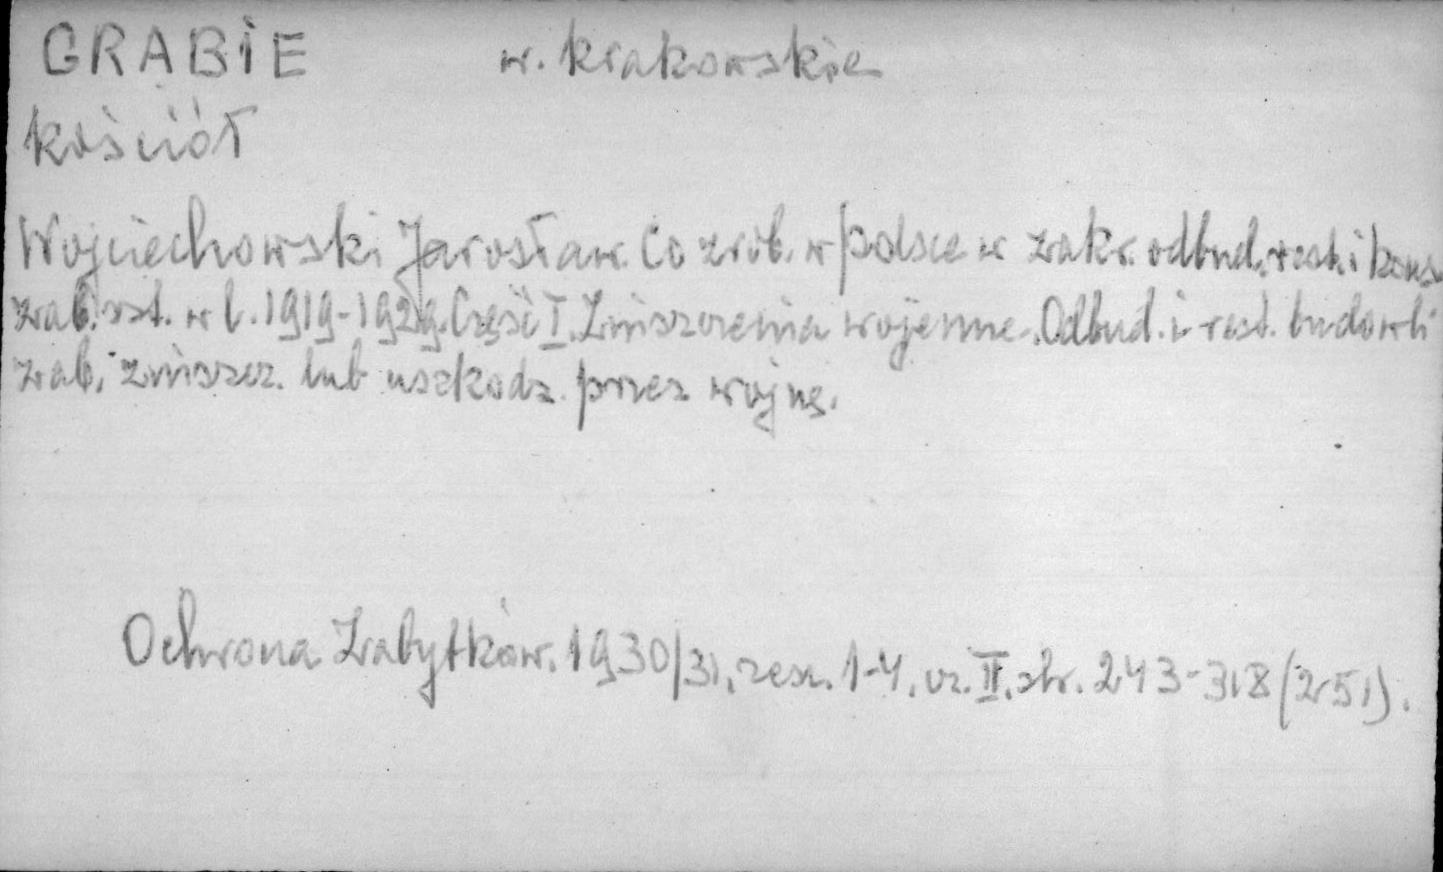 GRABIE w. krakowskie
kościół
Wojciechowski Jarosław. Co zrob. w Polsce w zakr. odbud. rest. i kons.
zab. szt. w l. 1919-1929. Część I. Zniszczenia wojenne. Odbud. i rest. budowli
zab. zniszcz. lub uszkodz. przez wojnę.
Ochrona Zabytków. 1930/31, zesz. 1-4, cz. II, str. 243-318 (251).